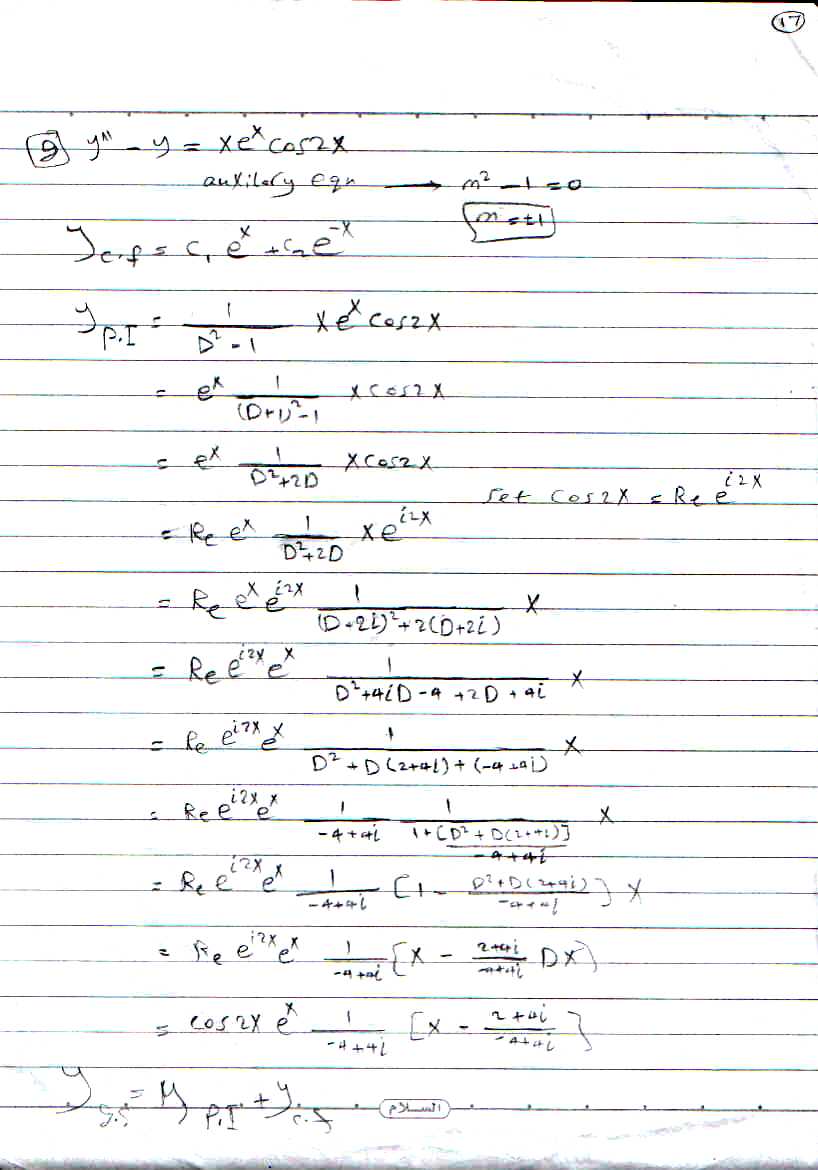 17
9 y'' - y = xe^x cos2x
auxilary eqn → m² - 1 = 0
m = ±1
y_c.f = c₁ e^x + c₂ e^-x
y_P.I = 1/(D² - 1) x e^x cos2x
= e^x 1/((D+1)² - 1) x cos2x
= e^x 1/(D²+2D) x cos2x
set cos2x = Re e^i2x
= Re e^x 1/(D²+2D) x e^i2x
= Re e^x e^i2x 1/((D+2i)²+2(D+2i)) x
= Re e^i2x e^x 1/(D²+4iD-4+2D+4i) x
= Re e^i2x e^x 1/(D²+D(2+4i)+(-4+4i)) x
= Re e^i2x e^x 1/(-4+4i) 1/(1+[D²+D(2+4i)]/(-4+4i)) x
= Re e^i2x e^x 1/(-4+4i) [1 - (D²+D(2+4i))/(-4+4i)] x
= Re e^i2x e^x 1/(-4+4i) [x - (2+4i)/(-4+4i) Dx]
= cos2x e^x 1/(-4+4i) [x - (2+4i)/(-4+4i)]
y_g.s = y_P.I + y_c.f
السلام